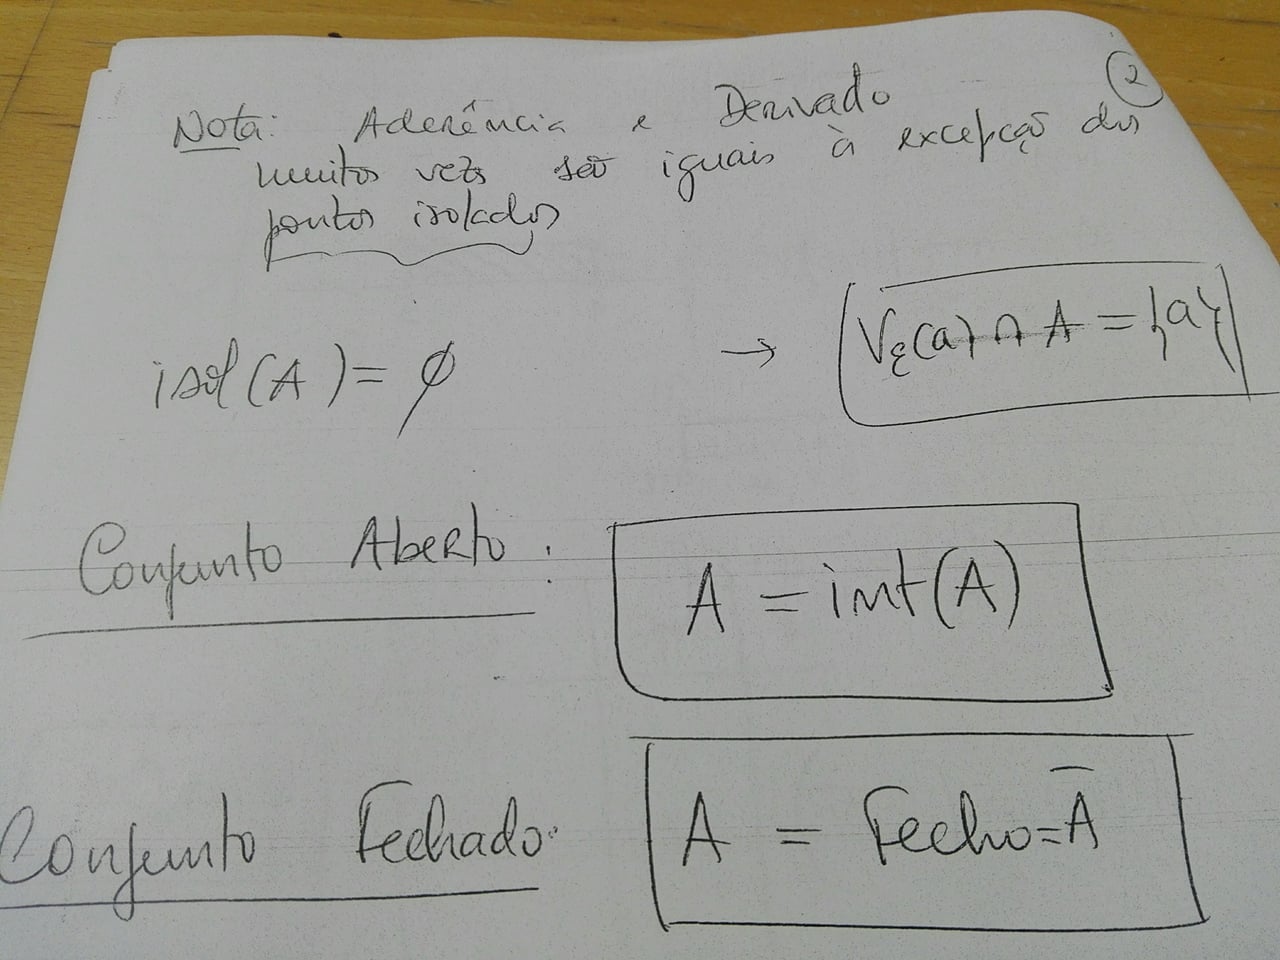 2
Nota: Aderência e Derivado
muitos vezes são iguais à excepção dos
pontos isolados
isol(A) = ∅ → Vε(a) ∩ A = {a}
Conjunto Aberto: A = int(A)
Conjunto Fechado: A = Fecho = Ā